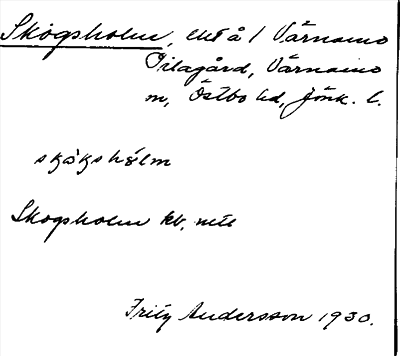 Skogsholm, enh å 1 Värnamo
Pilagård, Värnamo
sn, Östbo hd, Jönk. l.
skógshólm
Skogsholm kv,
Fritz Andersson 1930.